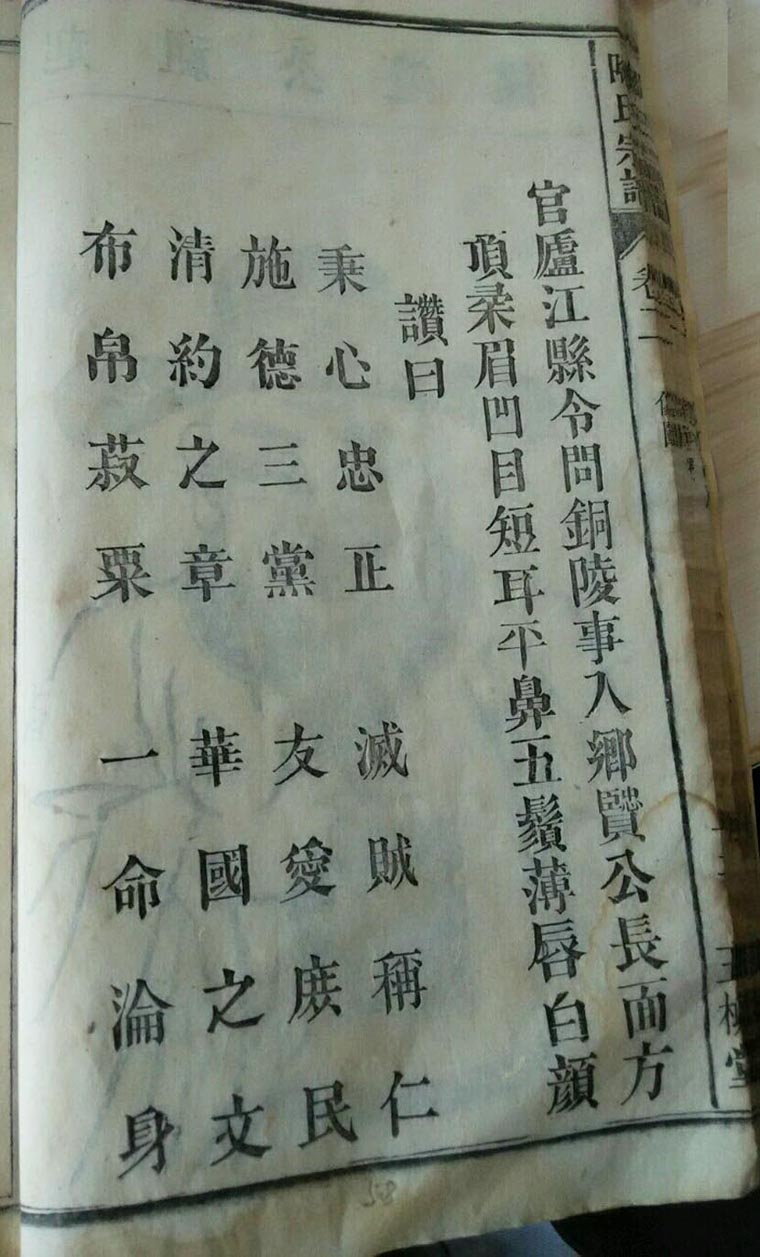 氏宗譜
卷二
官廬江縣令問銅陵事入鄉賢公長面方
項柔眉凹目短耳平鼻五鬚薄唇白顔
讚曰
秉心忠正　滅賊稱仁
施德三黨　友愛庶民
清約之章　華國之文
布帛菽粟　一命淪身
58